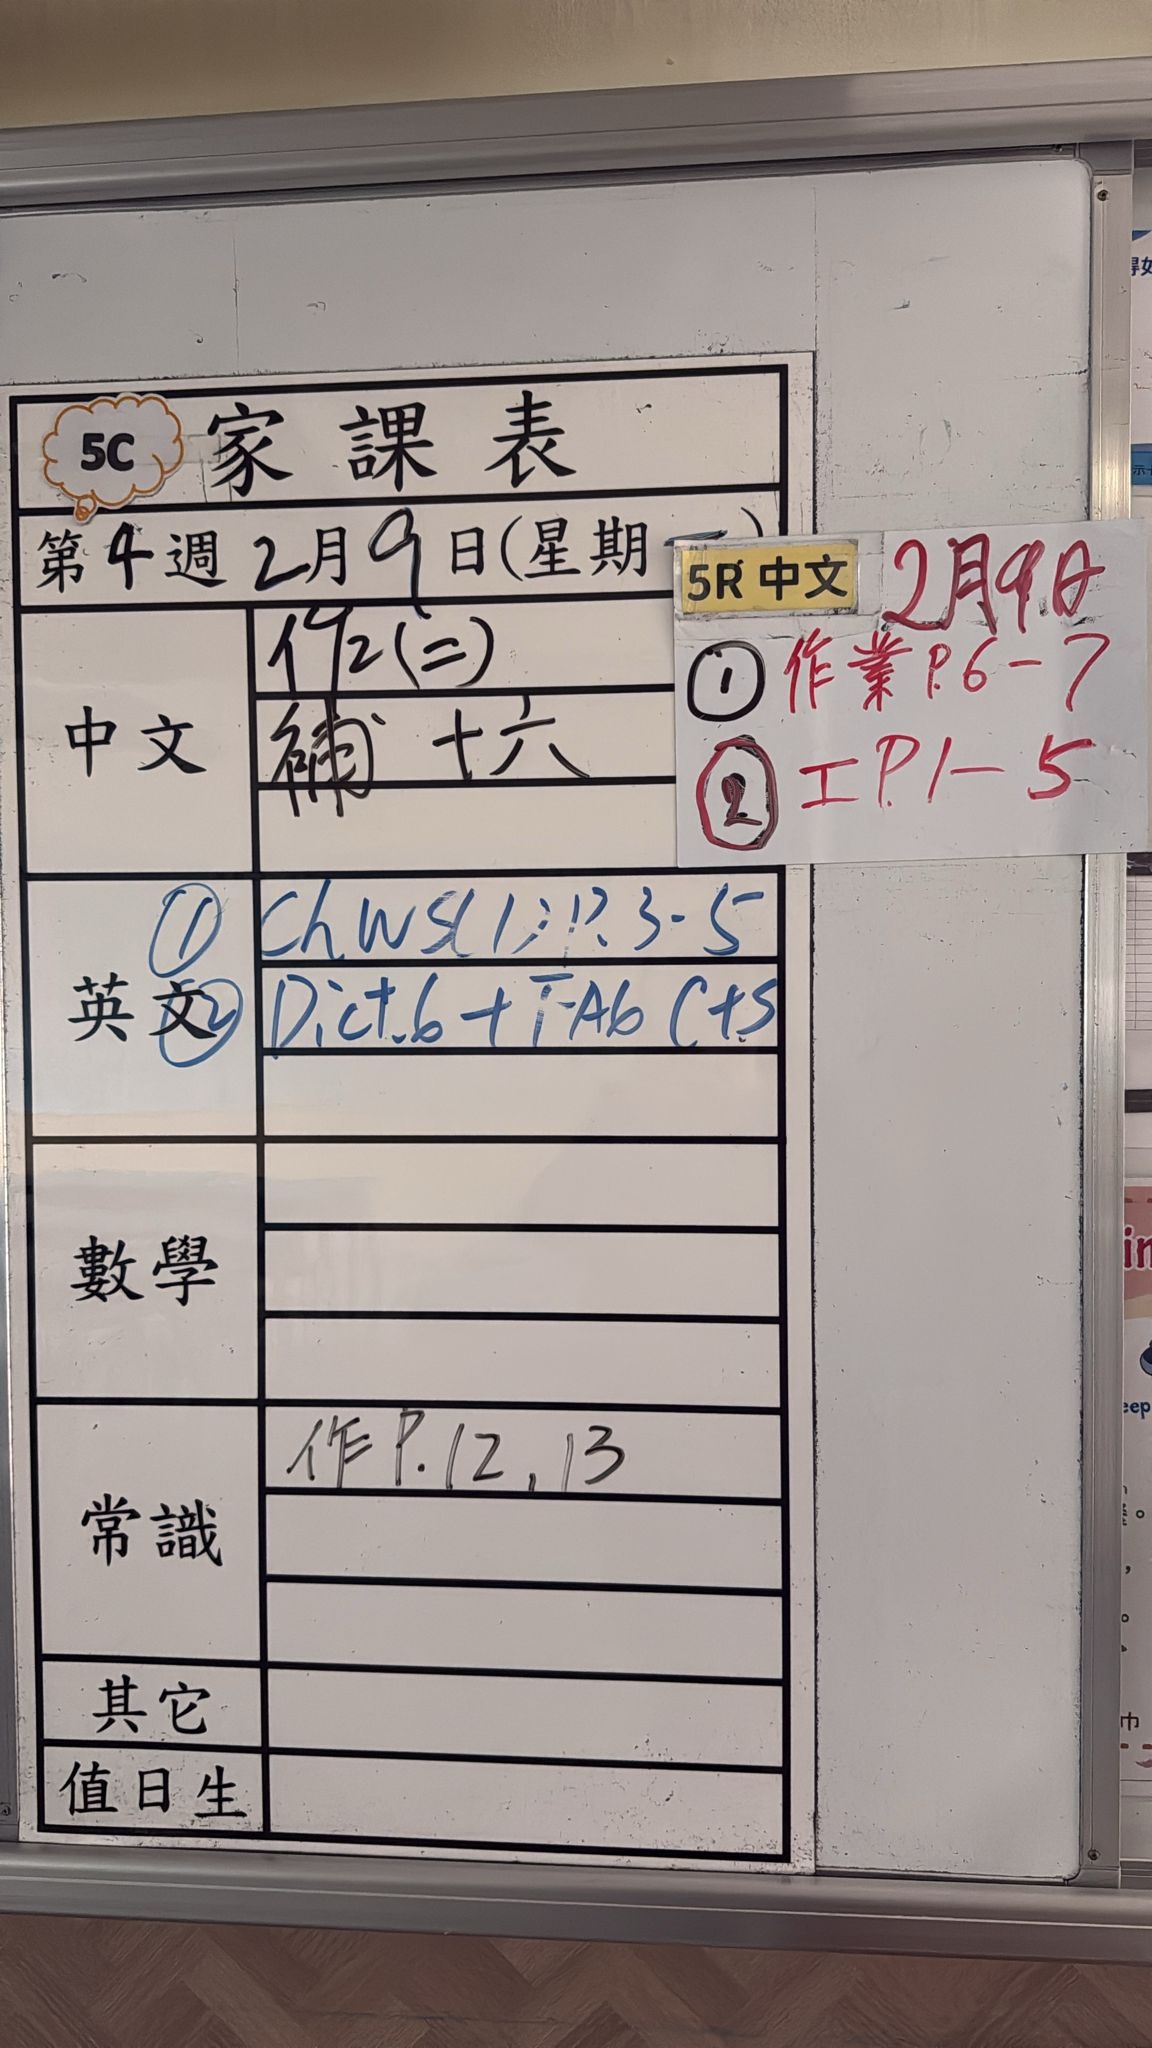 5C 家課表
第4週2月9日(星期一)
中文
作2(二)
補 十六
5R 中文 2月9日
① 作業P.6-7
② 工P.1-5
英文
① Ch WS(1): P.3-5
② Dict.6 +
數學
常識
作P.12, 13
其它
值日生